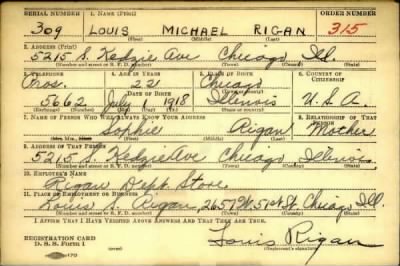 SERIAL NUMBER 1. NAME (Print) ORDER NUMBER
309 LOUIS MICHAEL RIGAN 315
(First) (Middle) (Last)
2. ADDRESS (Print)
5215 S. Kedzie Ave Chicago Ill.
(Number and street or R. F. D. number) (Town) (County) (State)
3. TELEPHONE 4. AGE IN YEARS 5. PLACE OF BIRTH 6. COUNTRY OF CITIZENSHIP
Pros. 22 Chicago
DATE OF BIRTH (Town or county)
5662 July 1918 Illinois U.S.A.
(Exchange) (Number) (Mo.) (Day) (Yr.) (State or country)
7. NAME OF PERSON WHO WILL ALWAYS KNOW YOUR ADDRESS 8. RELATIONSHIP OF THAT PERSON
Sophie Rigan Mother
(Mr., Mrs., Miss) (First) (Middle) (Last)
9. ADDRESS OF THAT PERSON
5215 S. Kedzie Ave Chicago, Illinois
(Number and street or R. F. D. number) (Town) (County) (State)
10. EMPLOYER'S NAME
Rigan Dept Store
11. PLACE OF EMPLOYMENT OR BUSINESS
Louis Rigan, 2657 W. 51st St Chicago Ill.
(Number and street or R. F. D. number) (Town) (County) (State)
I AFFIRM THAT I HAVE VERIFIED ABOVE ANSWERS AND THAT THEY ARE TRUE.
REGISTRATION CARD
D. S. S. Form 1 Louis Rigan
(Registrant's signature)